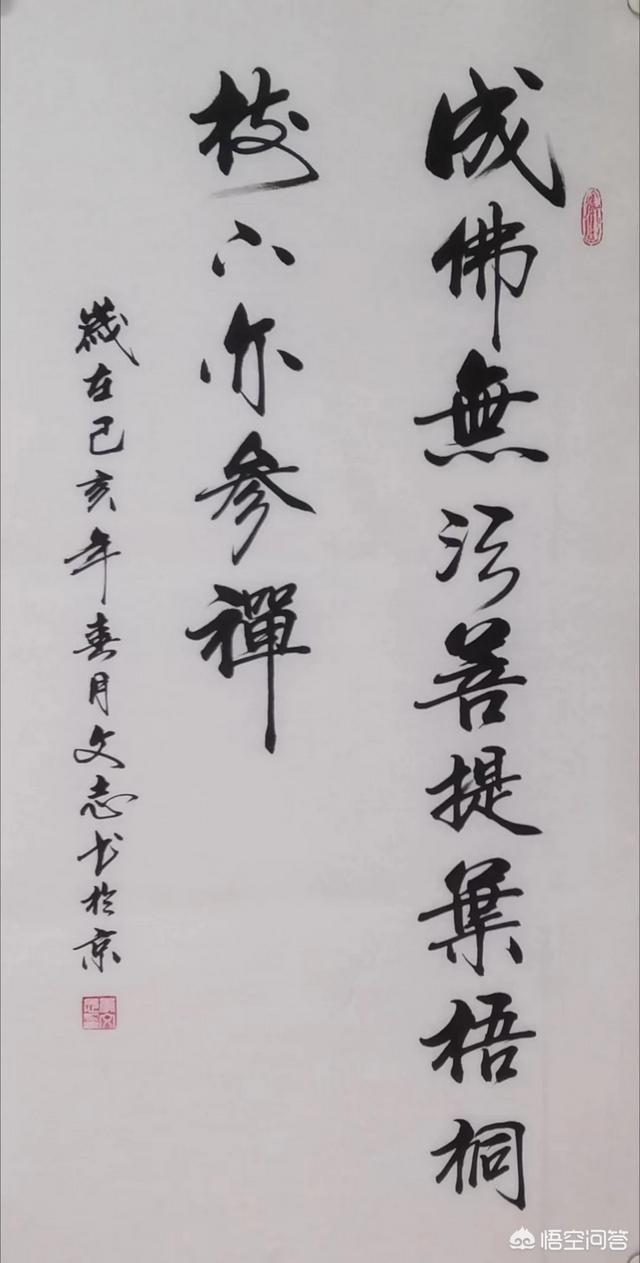 成佛無须菩提葉梧桐
树下亦参禪
歲在己亥年春月文志书於京
悟空问答